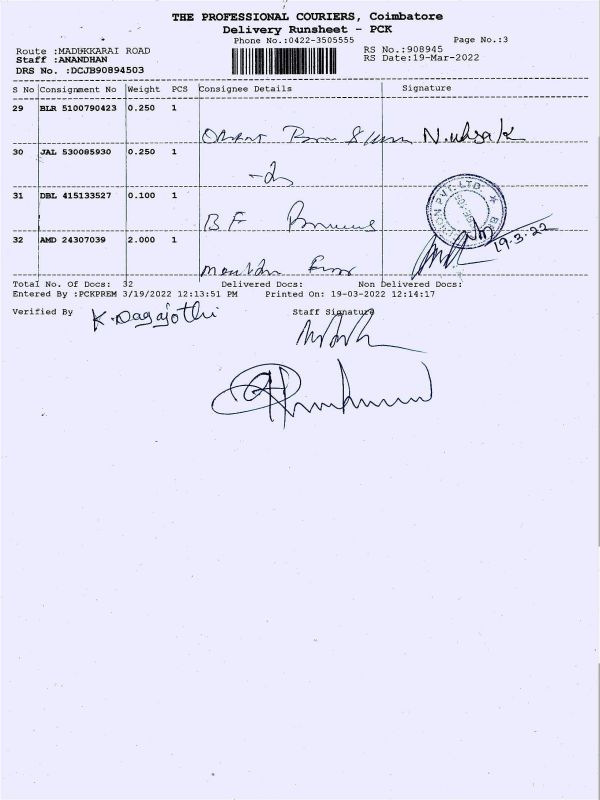 THE PROFESSIONAL COURIERS, Coimbatore
Delivery Runsheet - PCK
Phone No.:0422-3505555
Page No.:3
Route :MADUKKARAI ROAD
RS No.:908945
Staff :ANANDHAN
RS Date:19-Mar-2022
DRS No. :DCJB90894503
S No Consignment No Weight PCS Consignee Details Signature
29 BLR 5100790423 0.250 1
30 JAL 530085930 0.250 1
31 DBL 415133527 0.100 1
B.F
32 AMD 24307039 2.000 1
PVT. LTD.
19.3.22
Total No. Of Docs: 32 Delivered Docs: Non Delivered Docs:
Entered By :PCKPREM 3/19/2022 12:13:51 PM Printed On: 19-03-2022 12:14:17
Verified By Staff Signature